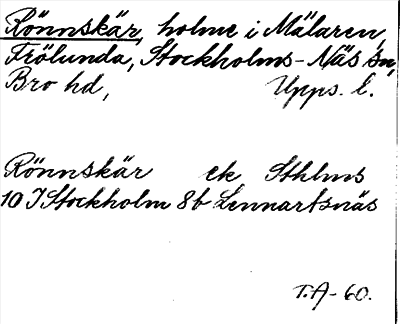 Rönnskär, holme i Mälaren,
Frölunda, Stockholms-Näs sn,
Bro hd, Upps. l.
Rönnskär ek Sthlms
10 I Stockholm 8b Lennartsnäs
T.A-60.